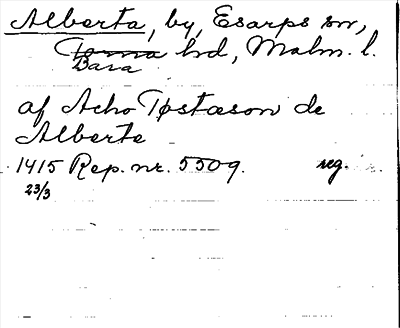 Alberta, by, Esarps sn,
Torna hd, Malm. l.
Bara
af Acho Tøstæson de
Alberte
1415 Rep. nr. 5509. reg.
23/3